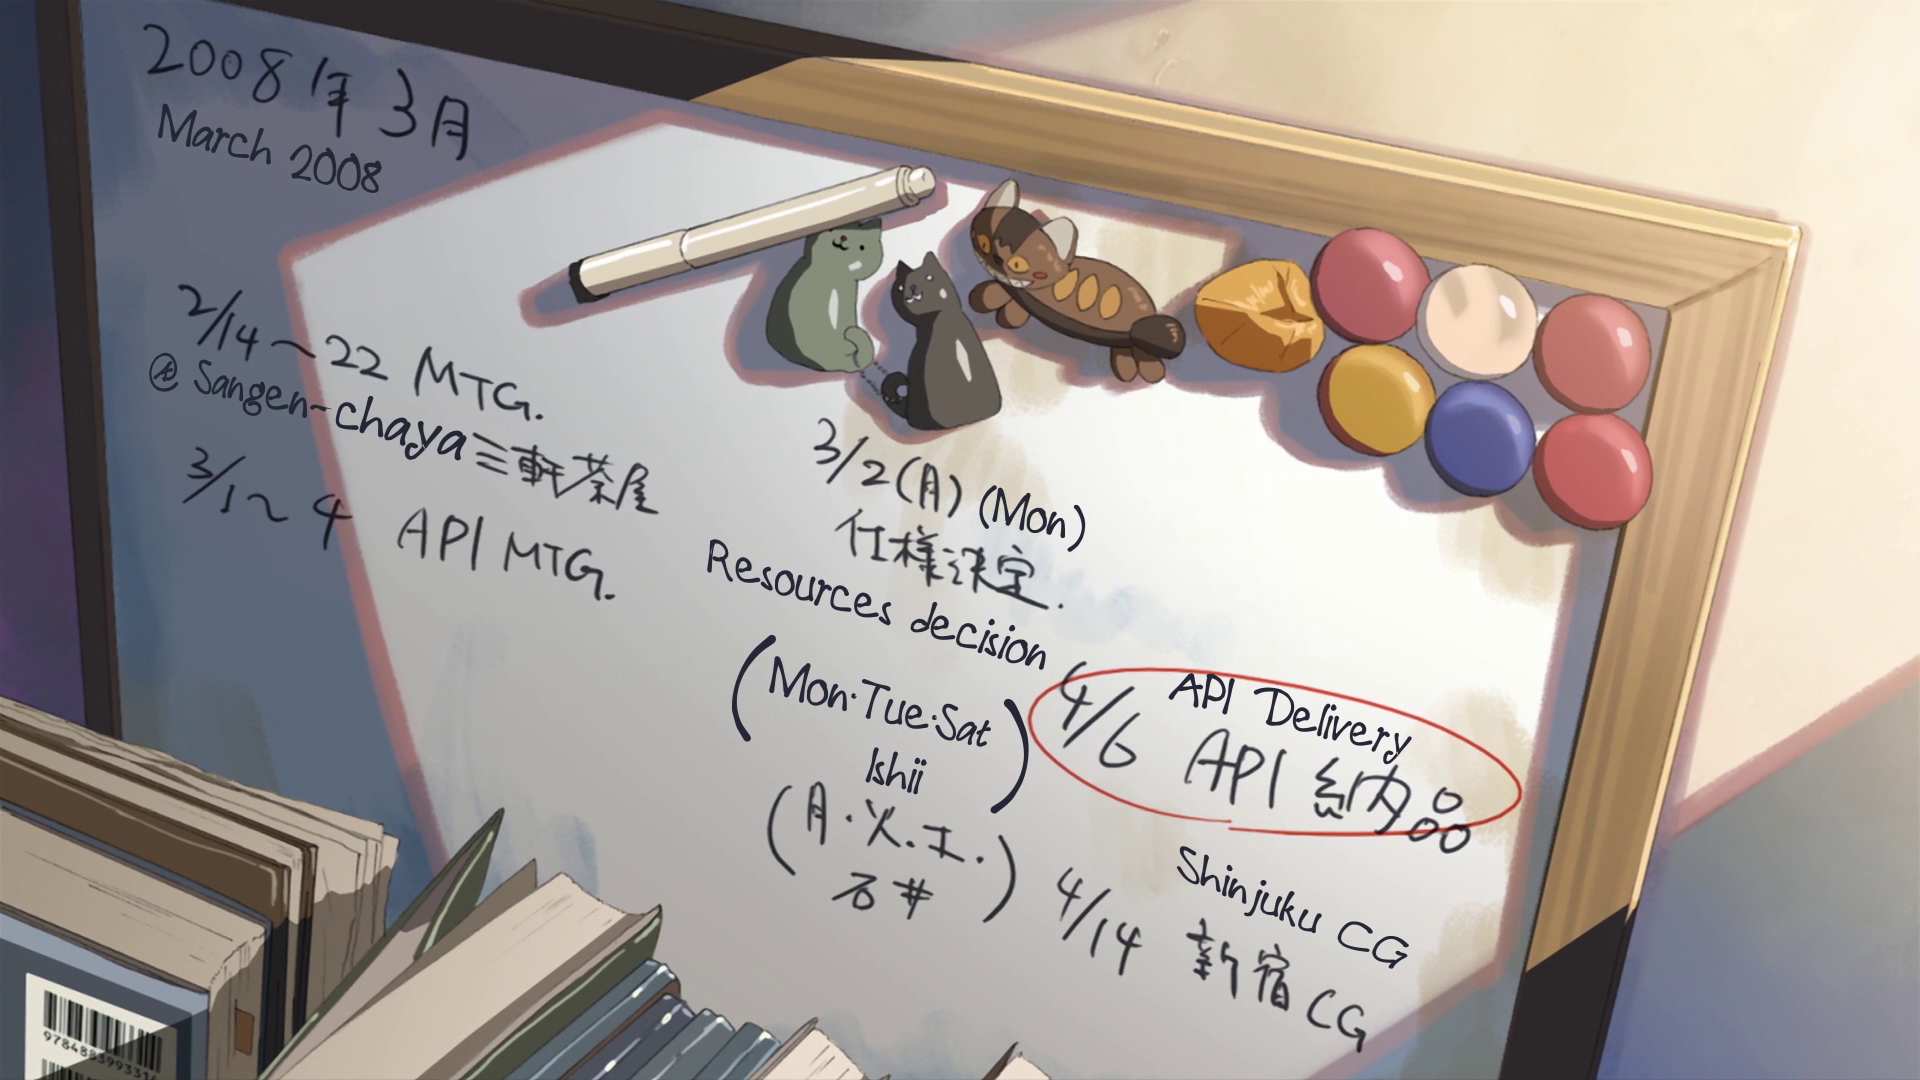 2008年3月
March 2008
2/14～22 MTG.
@ Sangen-chaya 三軒茶屋
3/1～4 API MTG.
3/2(月) (Mon)
仕様決定.
Resources decision
(Mon·Tue·Sat
Ishii)
(月·火.土.
石井)
API Delivery
4/6 API 納品
Shinjuku CG
4/14 新宿CG